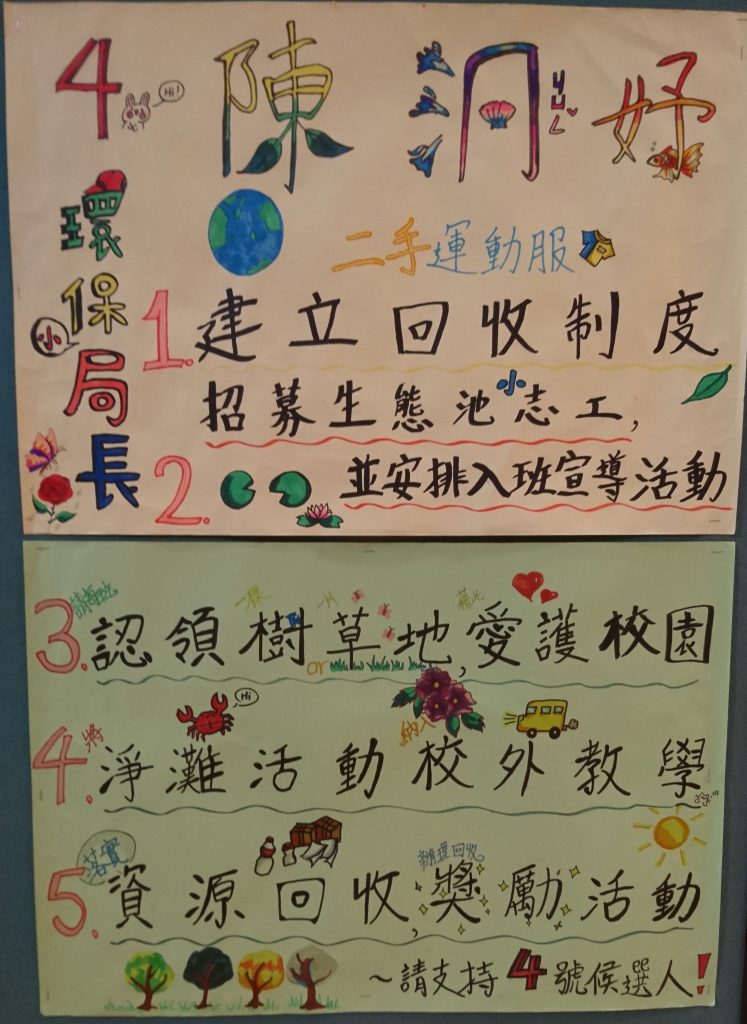 4 Hi! 陳 妤
環保局長
小
二手運動服
1. 建立回收制度
招募生態池小志工,
2. 並安排入班宣導活動
請每班 一棵 一片 藉此
3. 認領樹or草地,愛護校園
將 Hi 納入
4. 淨灘活動校外教學
落實 辦理回收
5. 資源回收,獎勵活動
~請支持4號候選人!